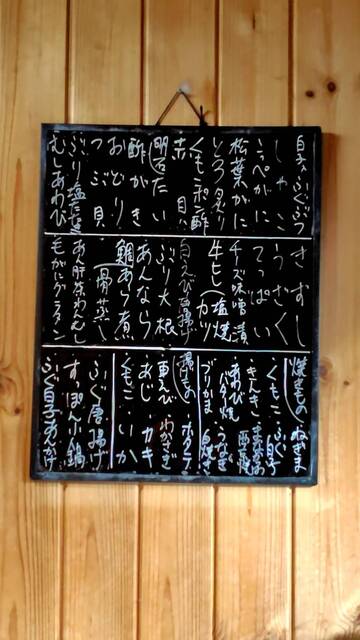 白子、ふぐぶつ
しゃこ
こっぺがに
松葉がに
とろ炙り
くもこポン酢
赤貝
明石だい
酢がき
おどり
つぶ貝
ぶり塩たたき
むしあわび
きずし
うざく
てっぱい
チーズ味噌漬
牛もし(塩焼 カツ
白えび唐揚げ
ぶり大根
あんなら
鯛あら煮
(骨蒸し)
あん肝茶わんむし
毛がにグラタン
焼きもの
ねぎま
くもこ
ふぐ白子
きんき
あわびバター焼
うなぎ白焼き
ぶりかま
揚もの
ホタテ
車えび
わかさぎ
あじ
カキ
くもこ
いか
ふぐ唐揚げ
すっぽん小鍋
ふぐ白子あんかけ